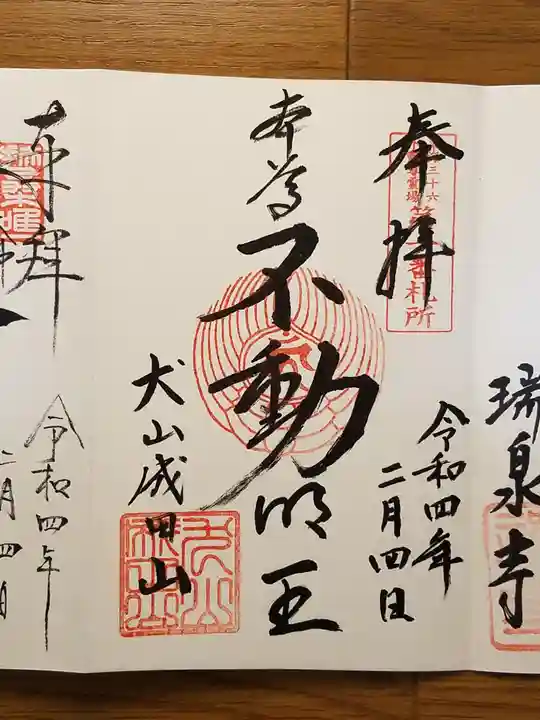 瑞泉寺
奉拝
三十六
霊場
番札所
令和四年
二月四日
本尊
不動明王
犬山成田山
奉拝
令和四年
二月四日